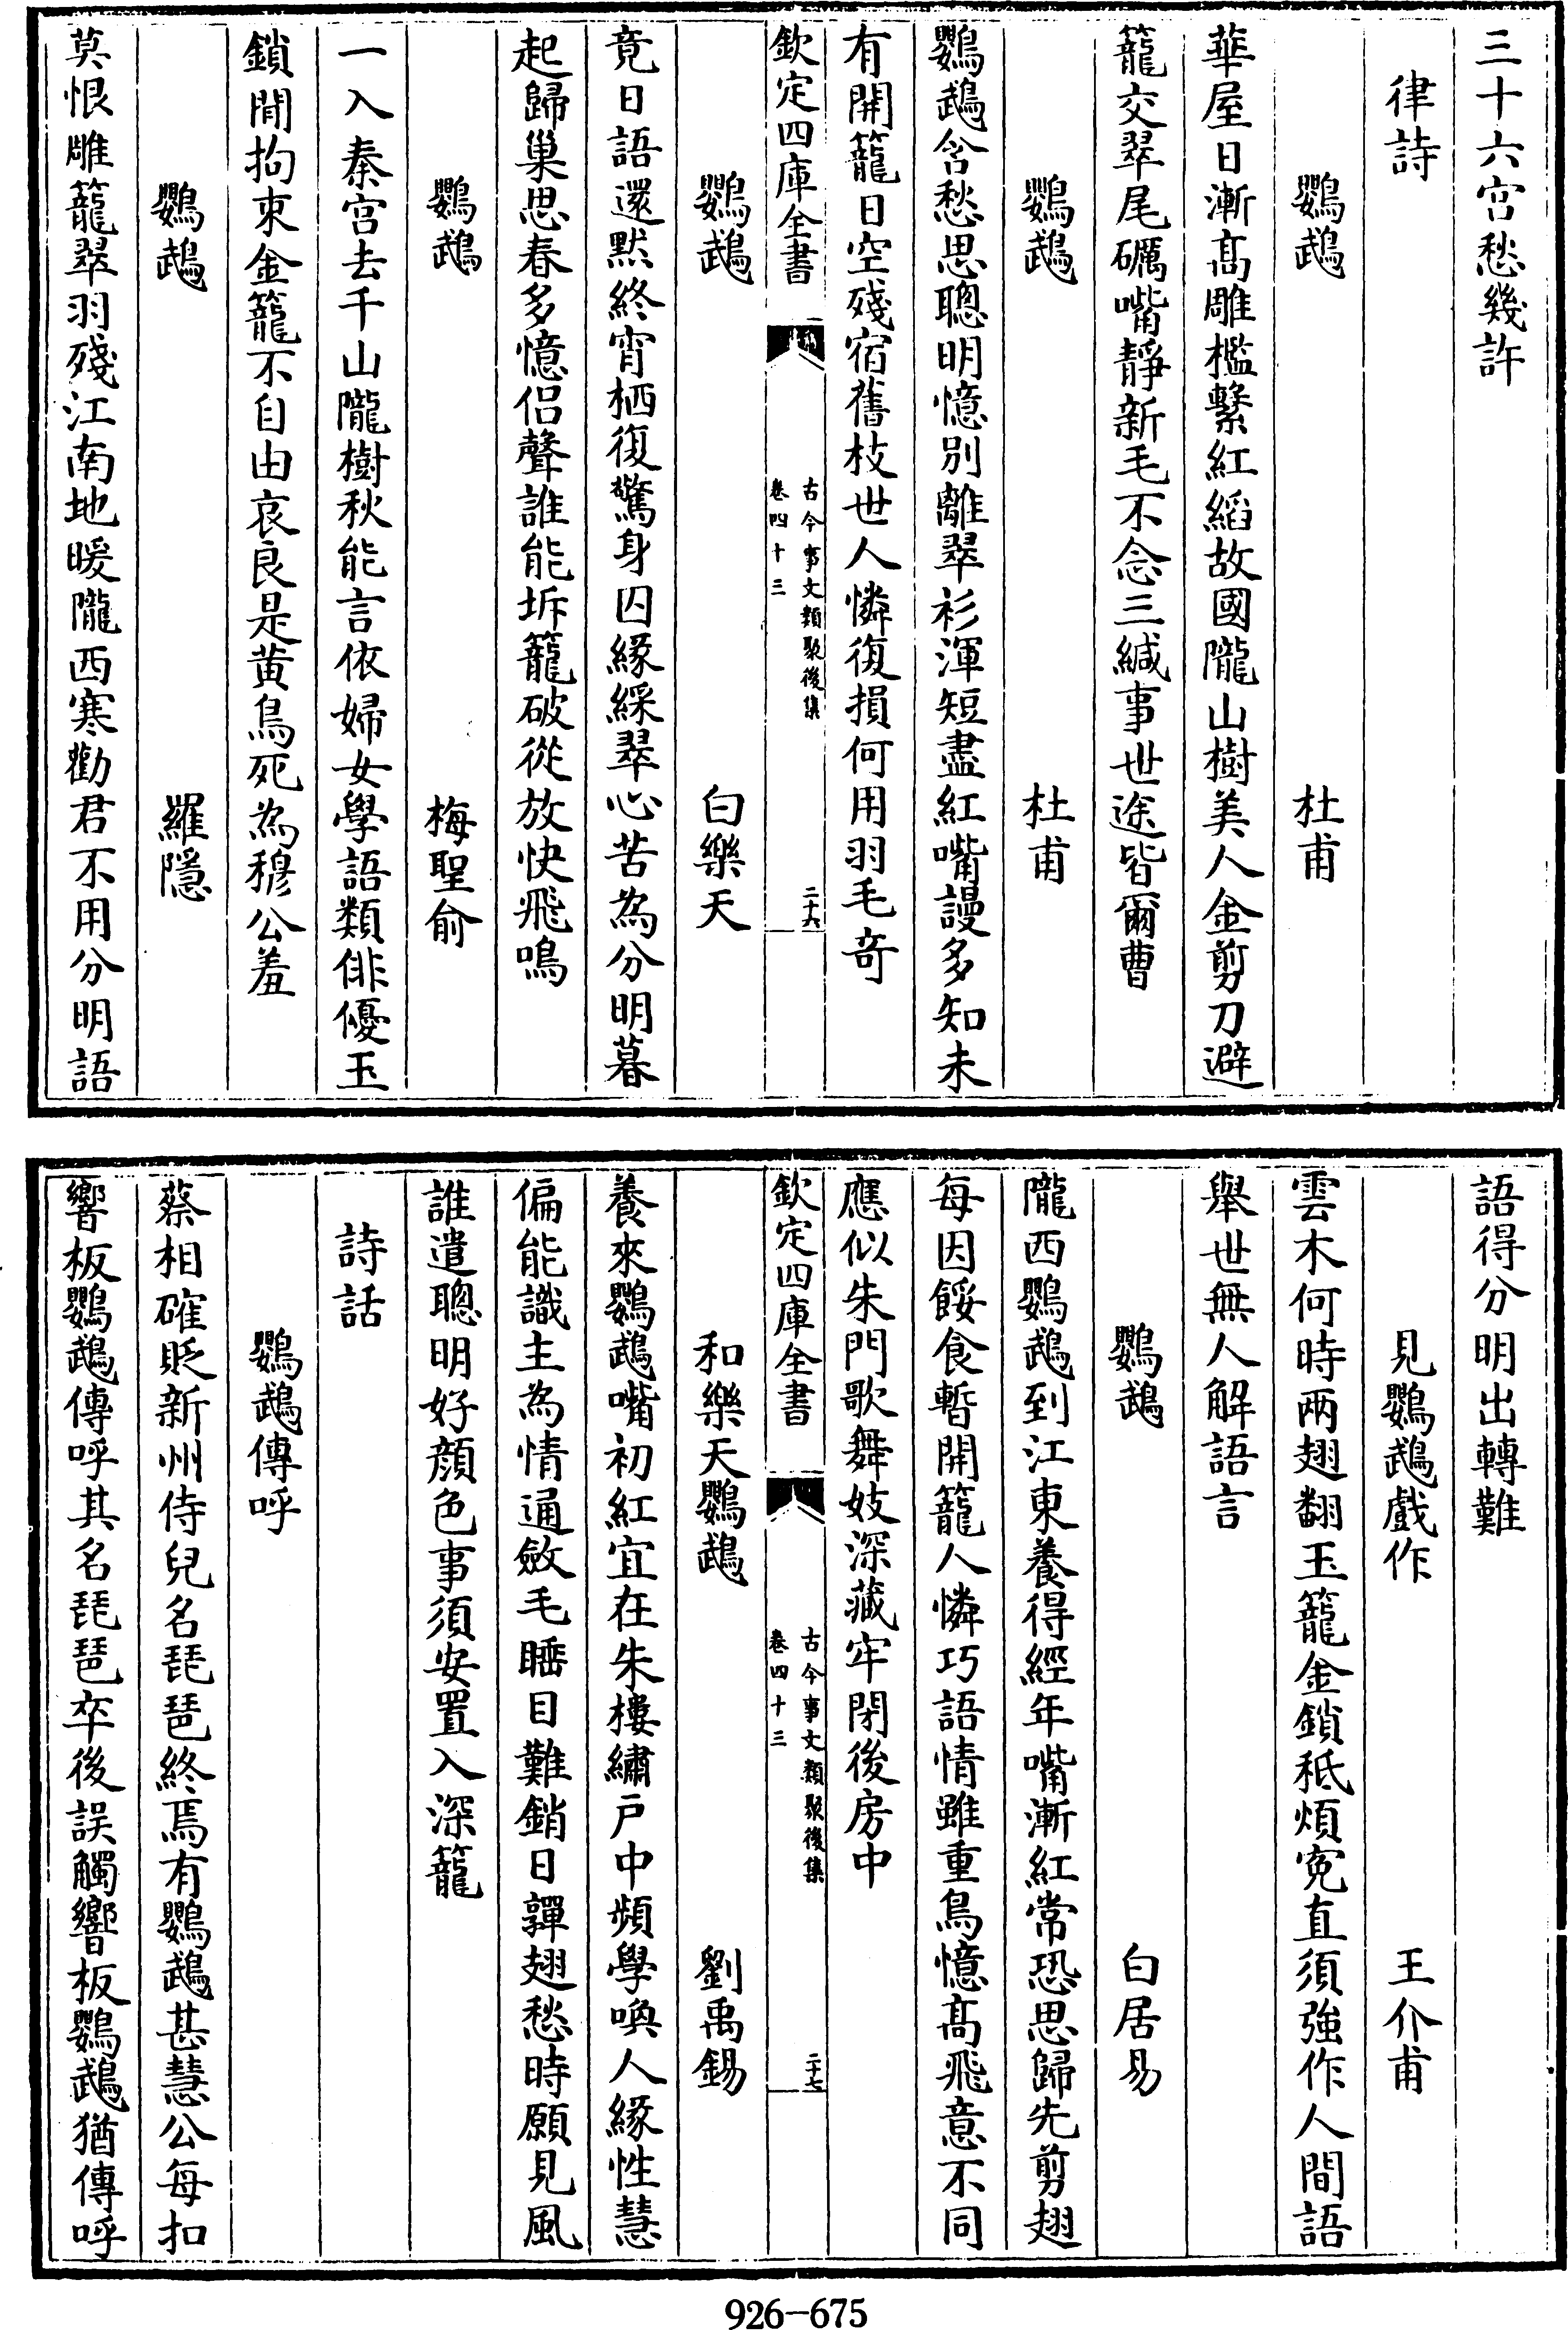 三十六宫愁幾許
律詩
鸚鵡　杜甫
華屋日漸髙雕檻繫紅縚故國隴山樹美人金剪刀避
籠交翠尾礪嘴靜新毛不念三緘事世途皆爾曹
鸚鵡　杜甫
鸚鵡含愁思聰明憶别離翠衫渾短盡紅嘴謾多知未
有開籠日空殘宿舊枝世人憐復損何用羽毛竒
欽定四庫全書　古今事文類聚後集　卷四十三　二十六
鸚鵡　白樂天
竟日語還黙終宵栖復驚身囚緣綵翠心苦為分明暮
起歸巢思春多憶侣聲誰能坼籠破從放快飛鳴
鸚鵡　梅聖俞
一入秦宫去千山隴樹秋能言依婦女學語類俳優玉
鎖閒拘束金籠不自由哀良是黄鳥死為穆公羞
鸚鵡　羅隱
莫恨雕籠翠羽殘江南地暖隴西寒勸君不用分明語
語得分明出轉難
見鸚鵡戲作　王介甫
雲木何時兩翅翻玉籠金鎖秖煩寃直須強作人間語
舉世無人解語言
鸚鵡　白居易
隴西鸚鵡到江東養得經年嘴漸紅常恐思歸先剪翅
每因餧食暫開籠人憐巧語情雖重鳥憶髙飛意不同
應似朱門歌舞妓深藏牢閉後房中
欽定四庫全書　古今事文類聚後集　卷四十三　二十七
和樂天鸚鵡　劉禹錫
養來鸚鵡嘴初紅宜在朱樓繡戸中頻學喚人緣性慧
偏能識主為情通斂毛睡目難銷日嚲翅愁時願見風
誰遣聰明好顔色事須安置入深籠
詩話
鸚鵡傳呼
蔡相確貶新州侍兒名琵琶終焉有鸚鵡甚慧公每扣
響板鸚鵡傳呼其名琵琶卒後誤觸響板鸚鵡猶傳呼
926-675